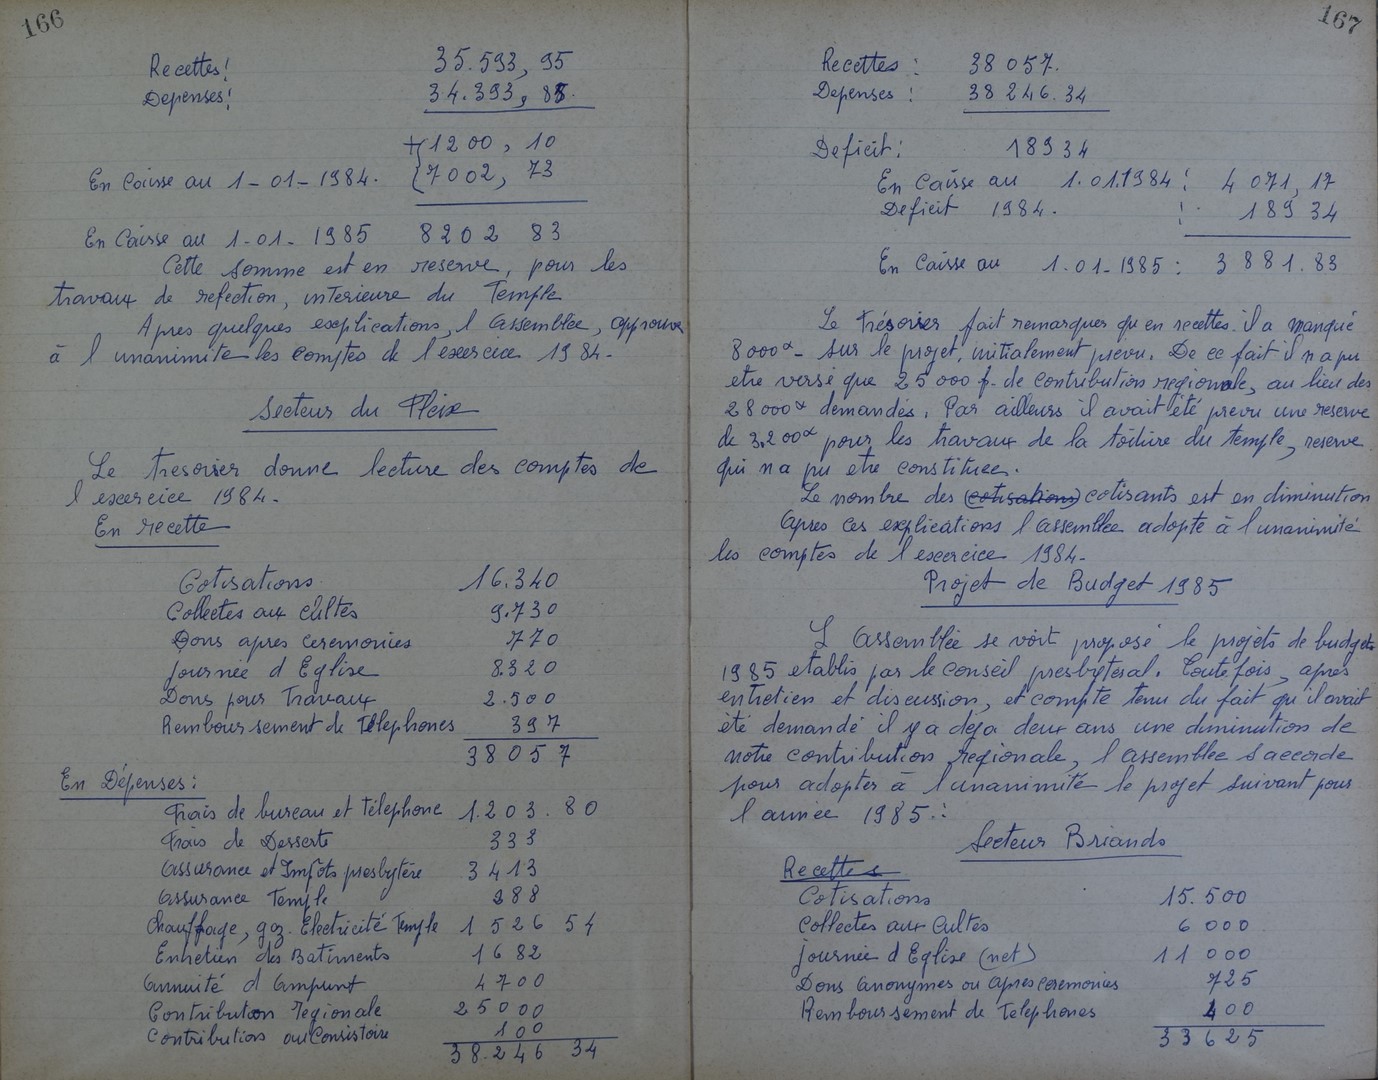 166
Recettes! 35.593,95
Depenses! 34.393,85.
+ 1200,10
En Caisse au 1-01-1984. 7002,73
En Caisse au 1-01-1985 8202 83
Cette somme est en reserve, pour les
travaux de refection, interieure du Temple
Apres quelques explications, l'assemblée, approuve
à l'unanimité les comptes de l'exercice 1984-
Secteur du Fleix
Le tresorier donne lecture des comptes de
l'exercice 1984.
En recette
Cotisations 16.340
Collectes aux cultes 9.730
Dons apres ceremonies 770
Journée d'Eglise 8.320
Dons pour Travaux 2.500
Remboursement de Telephones 397
38057
En Dépenses:
Frais de bureau et telephone 1.203.80
Frais de Desserte 333
Assurance et Impôts presbytère 3413
Assurance Temple 288
Chauffage, gaz. Electricité Temple 1526 54
Entretien des Batiments 1682
Annuité d'ampunt 4700
Contribution regionale 25000
Contribution au Consistoire 100
38.246 34
167
Recettes: 38057.
Depenses: 38246.34
Deficit: 18934
En Caisse au 1.01.1984: 4071,17
Deficit 1984.: 189 34
En Caisse au 1.01-1985: 3881.83
Le trésorier fait remarquer qu'en recettes il a manqué
8000 - sur le projet, initialement prevu. De ce fait il n'a pu
etre versé que 25000 f. de contribution regionale, au lieu des
28000 demandés. Par ailleurs il avait été prevu une reserve
de 3.200 pour les travaux de la toiture du temple, reserve
qui n'a pu etre constituée.
Le nombre des (cotisations) cotisants est en diminution
Apres ces explications l'assemblée adopte à l'unanimité
les comptes de l'exercice 1984-
Projet de Budget 1985
L'Assemblée se voit proposé le projets de budgets
1985 etablis par le conseil presbyteral. Toutefois, apres
entretien et discussion, et compte tenu du fait qu'il avait
été demandé il y a deja deux ans une diminution de
notre contribution regionale, l'assemblée s'accorde
pour adopter à l'unanimité le projet suivant pour
l'année 1985:
Secteur Briands
Recettes
Cotisations 15.500
Collectes aux Cultes 6000
Journée d'Eglise (net) 11000
Dons anonymes ou apres ceremonies 725
Remboursement de Telephones 400
33625